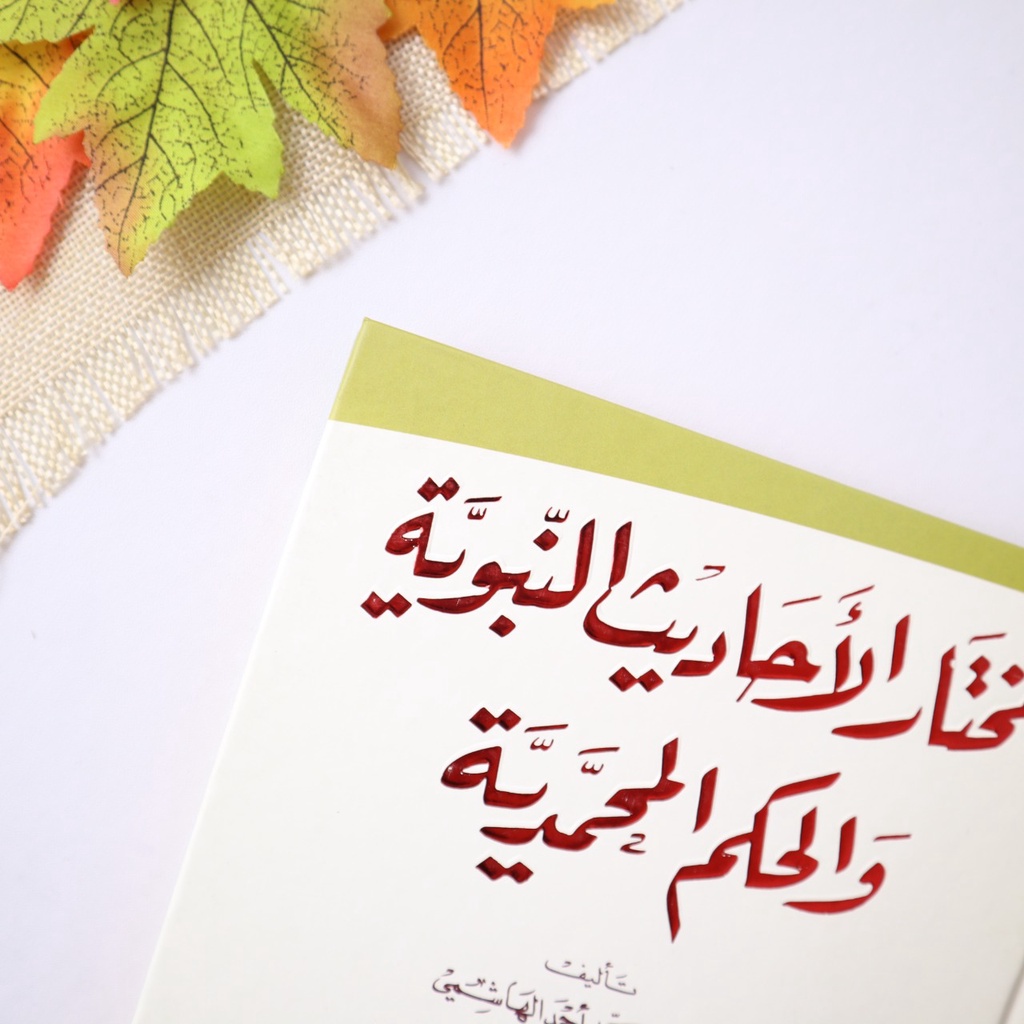 مختار الأحاديث النّبويَّة
وَالحكم المحمَّديَّة
تأليف
أحمد الهاشمي